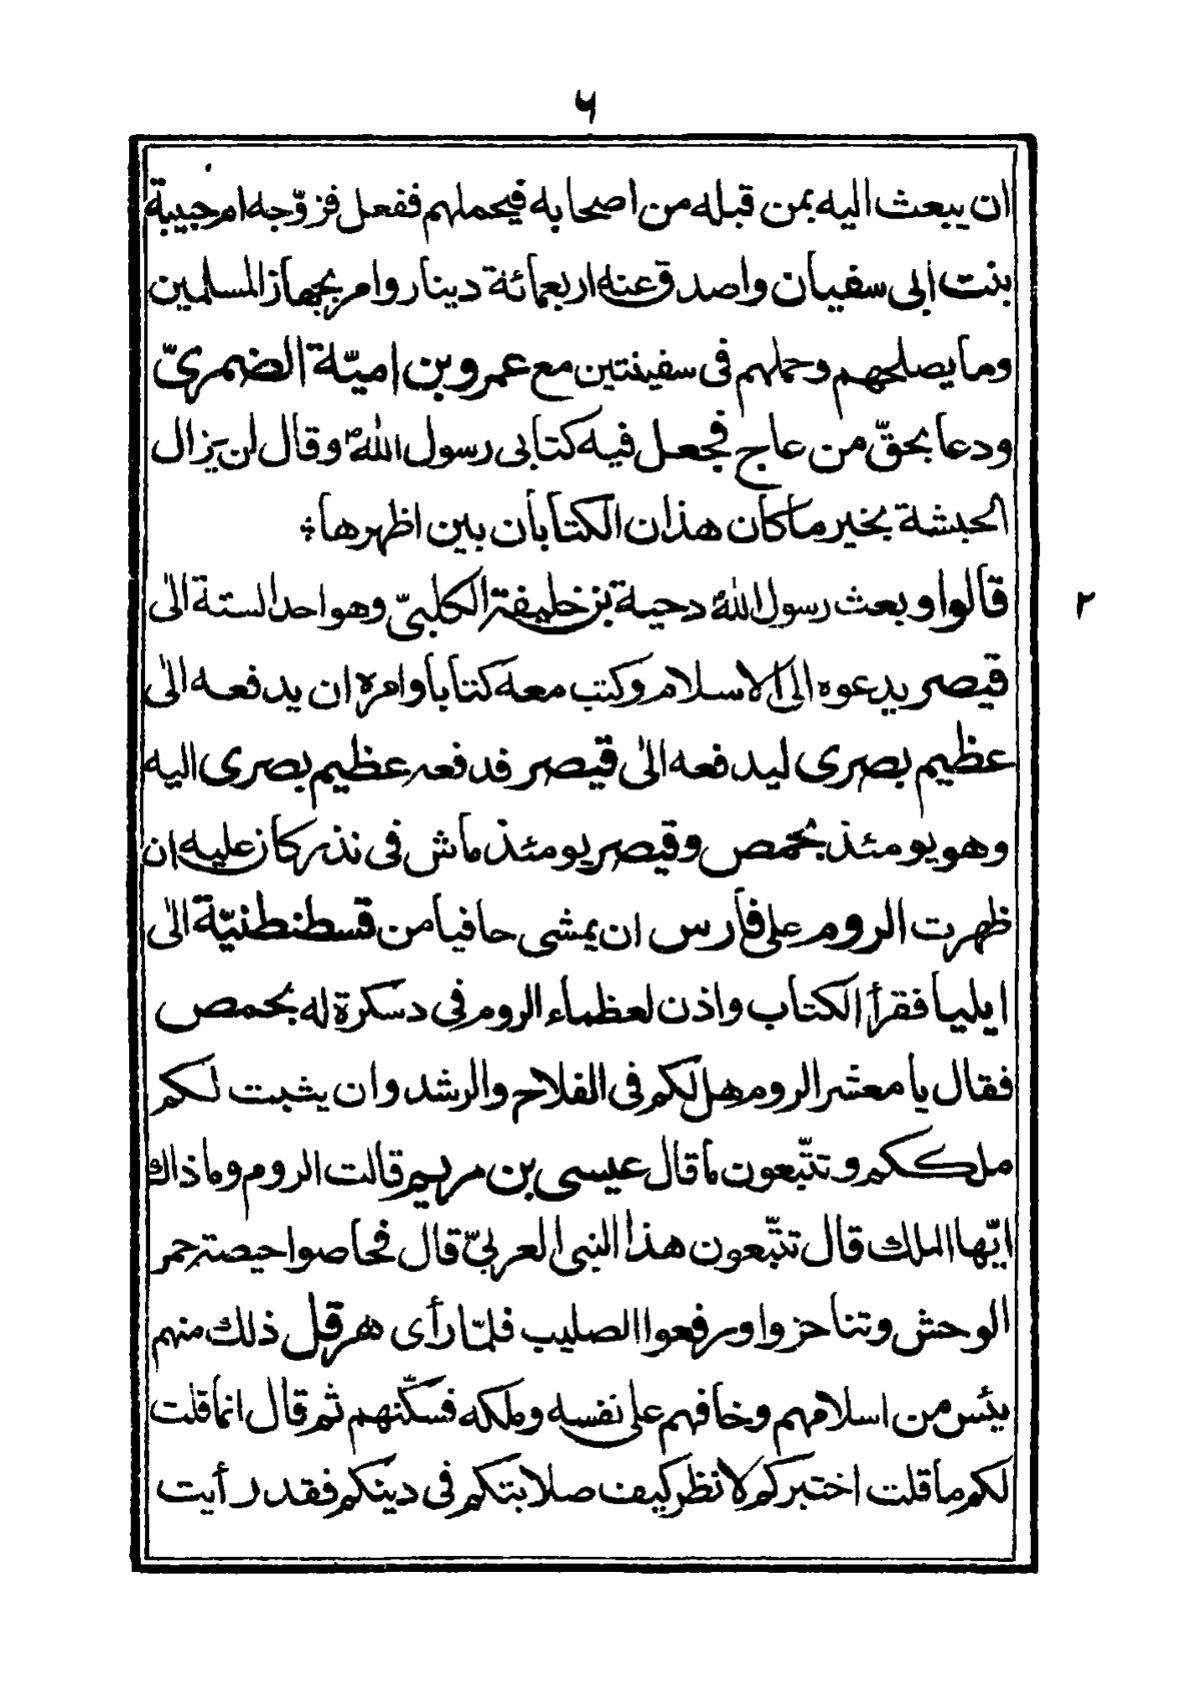 ٦
ان يبعث اليه بمن قبله من اصحابه فيحملهم ففعل فزوّجه ام حبيبة
بنت ابى سفيان واصدق عنه اربعمائة دينار وامر بجهاز المسلمين
وما يصلحهم وحملهم فى سفينتين مع عمرو بن امية الضمرىّ
ودعا بحقّ من عاج فجعل فيه كتابى رسول اللهؐ وقال لن يزال
الحبشة بخير ما كان هذان الكتابان بين اظهرها
قالوا وبعث رسول اللهؐ دحية بن خليفة الكلبىّ وهو احد الستة الى
٢
قيصر يدعوه الى الاسلام وكتب معه كتابا وامره ان يدفعه الى
عظيم بصرى ليدفعه الى قيصر فدفعه عظيم بصرى اليه
وهو يومئذ بحمص وقيصر يومئذ ماش فى نذر كان عليه ان
ظهرت الروم على فارس ان يمشى حافيا من قسطنطنيّة الى
ايليا فقرأ الكتاب واذن لعظماء الروم فى دسكرة له بحمص
فقال يا معشر الروم هل لكم فى الفلاح والرشد وان يثبت لكم
ملككم وتتّبعون ما قال عيسى بن مريم قالت الروم وما ذاك
ايّها الملك قال تتّبعون هذا النبى العربىّ قال فحاصوا حيصة حمر
الوحش وتناحزوا ورفعوا الصليب فلمّا رأى هرقل ذلك منهم
يئس من اسلامهم وخافهم على نفسه وملكه فسكّنهم ثم قال انما قلت
لكم ما قلت اختبركم لانظر كيف صلابتكم فى دينكم فقد رأيت